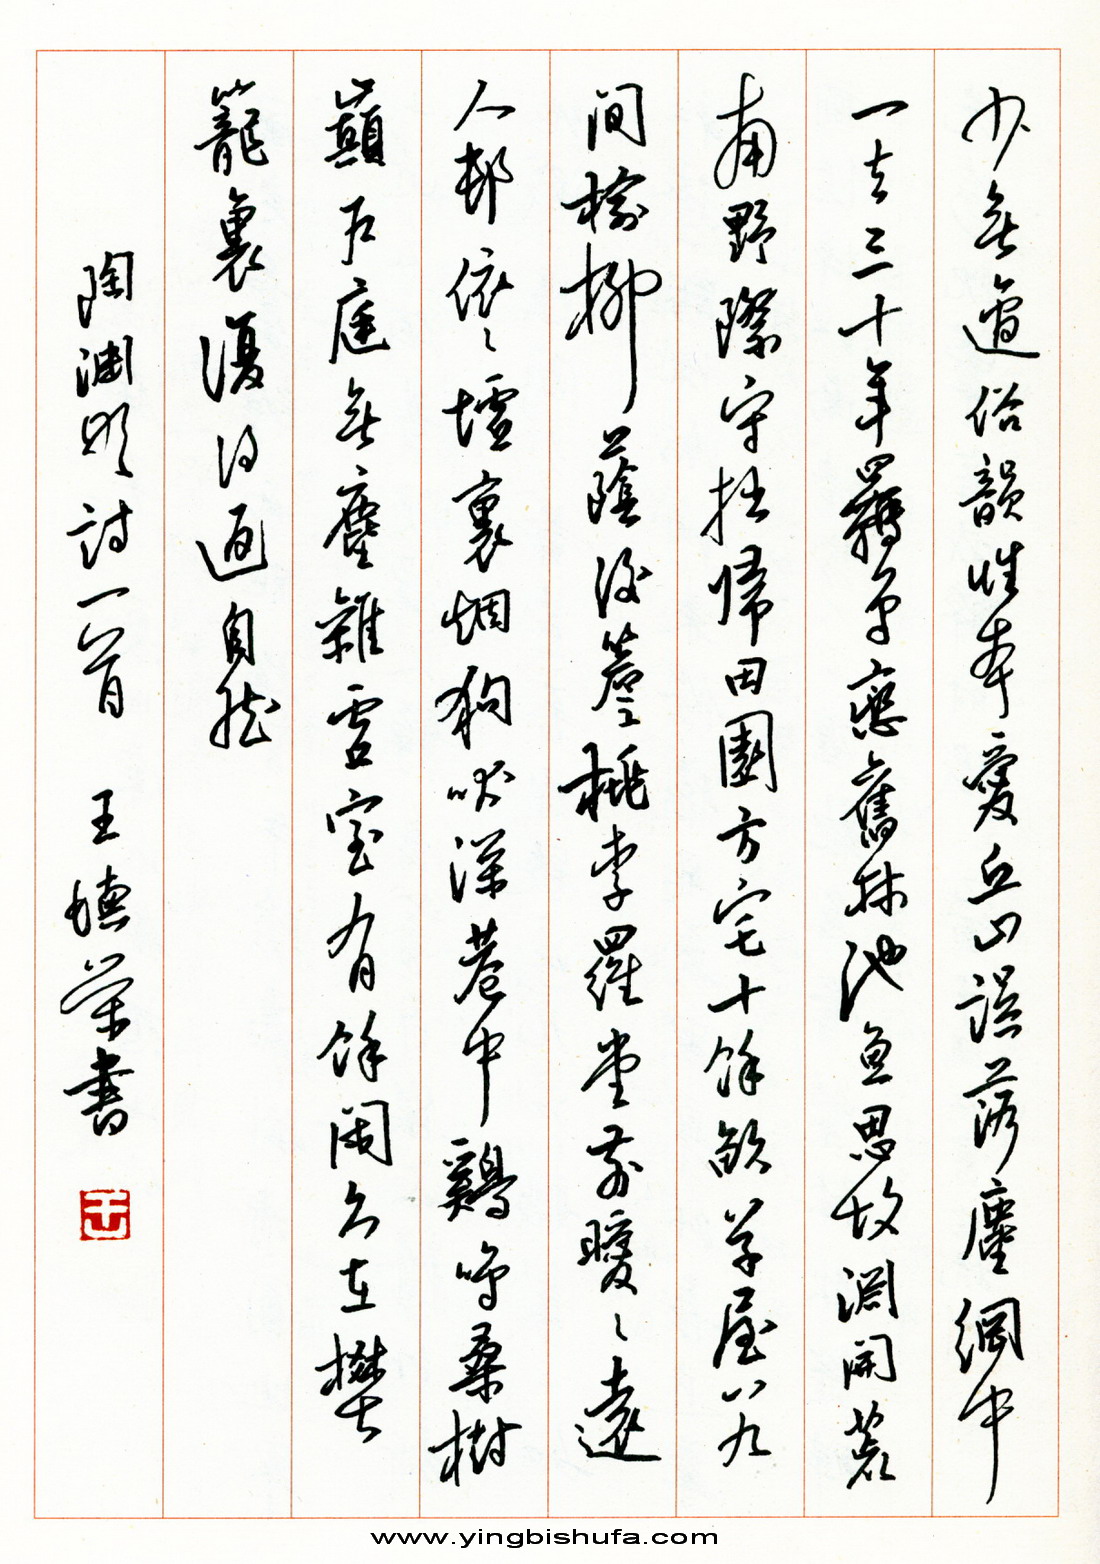 少無適俗韻性本愛丘山誤落塵網中
一去三十年羈鳥戀舊林池魚思故淵開荒
南野際守拙歸田園方宅十餘畝草屋八九
間榆柳蔭後簷桃李羅堂前曖〻遠
人邨依〻墟裏烟狗吠深巷中鷄鳴桑樹
巔户庭無塵雜虛室有餘閑久在樊
籠裏復得返自然
陶淵明詩一首 王榮書
王
www.yingbishufa.com